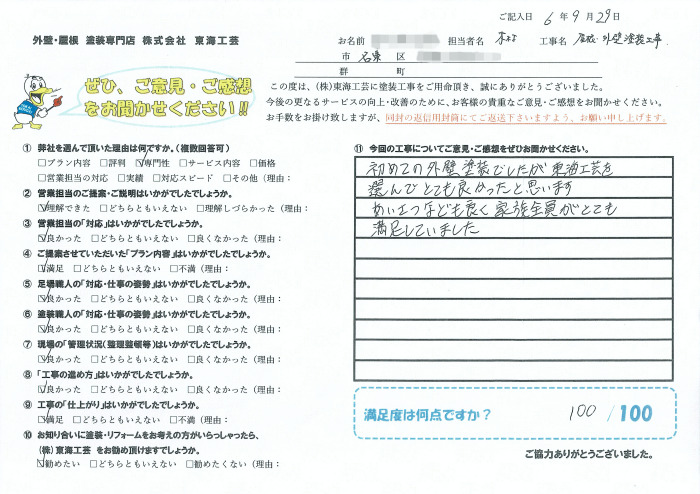 ご記入日 6 年 9 月 29 日
外壁・屋根 塗装専門店 株式会社 東海工芸
お名前 担当者名 工事名 屋根・外壁塗装工事
市 名東 区
郡 町
ぜひ、ご意見・ご感想
をお聞かせください!!
この度は、(株)東海工芸に塗装工事をご用命頂き、誠にありがとうございました。
今後の更なるサービスの向上・改善のために、お客様の貴重なご意見・ご感想をお聞かせください。
お手数をお掛け致しますが、同封の返信用封筒にてご返送下さいますよう、お願い申し上げます。
① 弊社を選んで頂いた理由は何ですか。(複数回答可)
□プラン内容 □評判 ☑専門性 □サービス内容 □価格
□営業担当の対応 □実績 □対応スピード □その他(理由：
② 営業担当のご提案・ご説明はいかがでしたでしょうか。
☑理解できた □どちらともいえない □理解しづらかった(理由：
③ 営業担当の「対応」はいかがでしたでしょうか。
☑良かった □どちらともいえない □良くなかった(理由：
④ ご提案させていただいた「プラン内容」はいかがでしたでしょうか。
☑満足 □どちらともいえない □不満(理由：
⑤ 足場職人の「対応・仕事の姿勢」はいかがでしたでしょうか。
☑良かった □どちらともいえない □良くなかった(理由：
⑥ 塗装職人の「対応・仕事の姿勢」はいかがでしたでしょうか。
☑良かった □どちらともいえない □良くなかった(理由：
⑦ 現場の「管理状況(整理整頓等)はいかがでしたでしょうか。
☑良かった □どちらともいえない □良くなかった(理由：
⑧ 「工事の進め方」はいかがでしたでしょうか。
☑良かった □どちらともいえない □良くなかった(理由：
⑨ 工事の「仕上がり」はいかがでしたでしょうか。
☑満足 □どちらともいえない □不満(理由：
⑩ お知り合いに塗装・リフォームをお考えの方がいらっしゃったら、
(株)東海工芸 をお勧め頂けますでしょうか。
☑勧めたい □どちらともいえない □勧めたくない(理由：
⑪ 今回の工事についてご意見・ご感想をぜひお聞かせください。
初めての外壁塗装でしたが東海工芸を
選んでとても良かったと思います
あいさつなども良く家族全員がとても
満足していました
満足度は何点ですか？ 100 / 100
ご協力ありがとうございました。